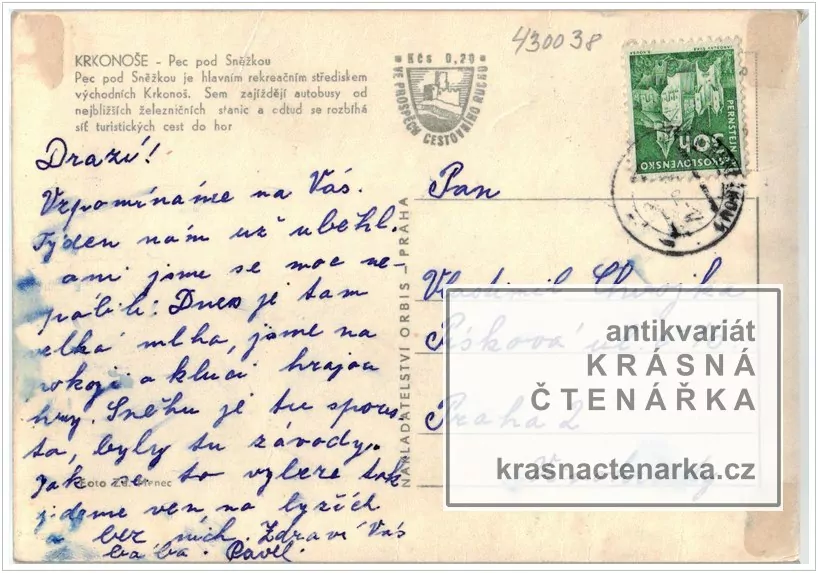 430038
KRKONOŠE – Pec pod Sněžkou
Pec pod Sněžkou je hlavním rekreačním střediskem
východních Krkonoš. Sem zajíždějí autobusy od
nejbližších železničních stanic a odtud se rozbíhá
síť turistických cest do hor
Kčs 0,20
VE PROSPĚCH CESTOVNÍHO RUCHU
PERNSTEJN
50h
ČESKOSLOVENSKO
Drazí!
Vzpomínáme na Vás.
Týden nám už uběhl.
ani jsme se moc ne-
Dnes je tam
velká mlha, jsme na
pokoji a kluci hrajou
hry. Sněhu je tu spous
ta, byly tu závody.
Jak se to vybere tak
jdeme ven na lyžích
a bez nich. Zdraví Vás
bába. Pavel.
Foto Zd.
NAKLADATELSTVÍ ORBIS – PRAHA
Pan
Vlastimil
Písková ul.
Praha 2
antikvariát
KRÁSNÁ
ČTENÁŘKA
krasnactenarka.cz